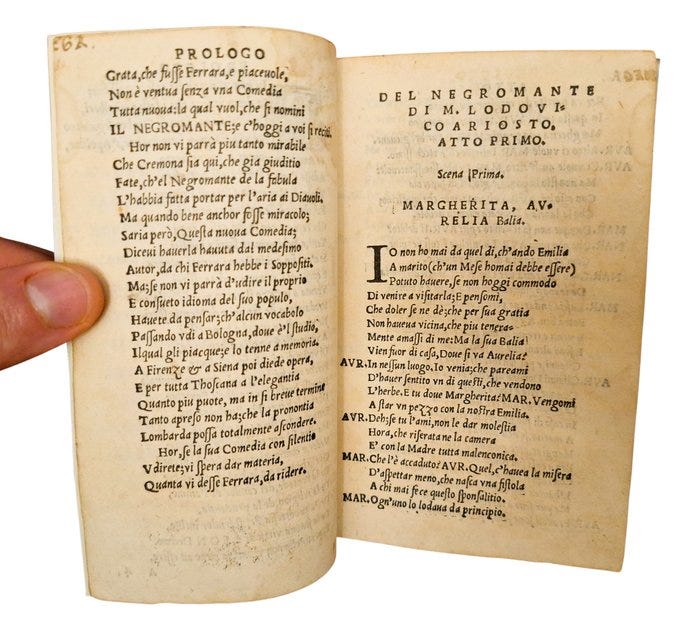 262.
PROLOGO
Grata, che fusse Ferrara, e piaceuole,
Non è ventua senza vna Comedia
Tutta nuoua: la qual vuol, che si nomini
IL NEGROMANTE; e c'hoggi a voi si reciti.
Hor non vi parrà piu tanto mirabile
Che Cremona sia qui, che gia giuditio
Fate, ch'el Negromante de la fabula
L'habbia fatta portar per l'aria ai Diauoli.
Ma quando bene anchor fosse miracolo;
Saria però, Questa nuoua Comedia;
Diceui hauerla hauuta dal medesimo
Autor, da chi Ferrara hebbe i Soppositi.
Ma; se non vi parrà d'udire il proprio
E consueto idioma del suo populo,
Hauete da pensar; ch'alcun vocabolo
Passando vdi a Bologna, doue è'l studio,
Ilqual gli piacque; e lo tenne a memoria.
A Firenze & a Siena poi diede opera,
E per tutta Thoscana a l'elegantia
Quanto piu puote, ma in si breue termine
Tanto apreso non ha; che la pronontia
Lombarda possa totalmente ascondere.
Hor, se la sua Comedia con silentio
Vdirete; vi spera dar materia,
Quanta vi desse Ferrara, da ridere.
DEL NEGROMANTE
DI M. LODOVI-
CO ARIOSTO.
ATTO PRIMO.
Scena Prima.
MARGHERITA, AV-
RELIA Balia.
IO non ho mai da quel dì, ch'ando Emilia
A marito (ch'un Mese homai debbe essere)
Potuto hauere, se non hoggi commodo
Di venire a visitarla; E pensomi,
Che doler se ne dè; che per sua gratia
Non haueua vicina, che piu tenera-
Mente amassi di me: Ma la sua Balia
Vien fuor di casa, Doue si va Aurelia?
AVR. In nessun luogo. Io venia; che pareami
D'hauer sentito vn di questi, che vendono
L'herbe. E tu doue Margherita? MAR. Vengomi
A star vn pezzo con la nostra Emilia.
AVR. Deh; se tu l'ami, non le dar molestia
Hora, che riserata ne la camera
E' con la Madre tutta malenconica.
MAR. Che l'è accaduto? AVR. Quel, c'hauea la misera
D'aspettar meno, che nasca vna fistola
A chi mai fece questo sponsalitio.
MAR. Ogn'uno lo lodaua da principio.